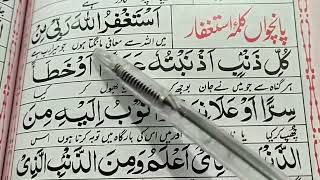 پانچواں کلمہ استغفار
اَسْتَغْفِرُ اللّٰهَ رَبِّیْ مِنْ
میں اللہ سے معافی مانگتا ہوں جو میرا رب ہے
كُلِّ ذَنْۢبٍ اَذْنَبْتُهٗ اَوْ خَطَاً
ہر گناہ سے جو میں نے جان بوجھ بھول کر
سِرًّا اَوْ عَلَانِیَةً وَّ اَتُوْبُ اِلَیْهِ مِنَ
چھپ کر کیا یا اور میں اس کی بارگاہ میں توبہ کرتا ہوں اس
الذَّنْۢبِ اَعْلَمُ وَ مِنَ الذَّنْۢبِ الَّذِیْ